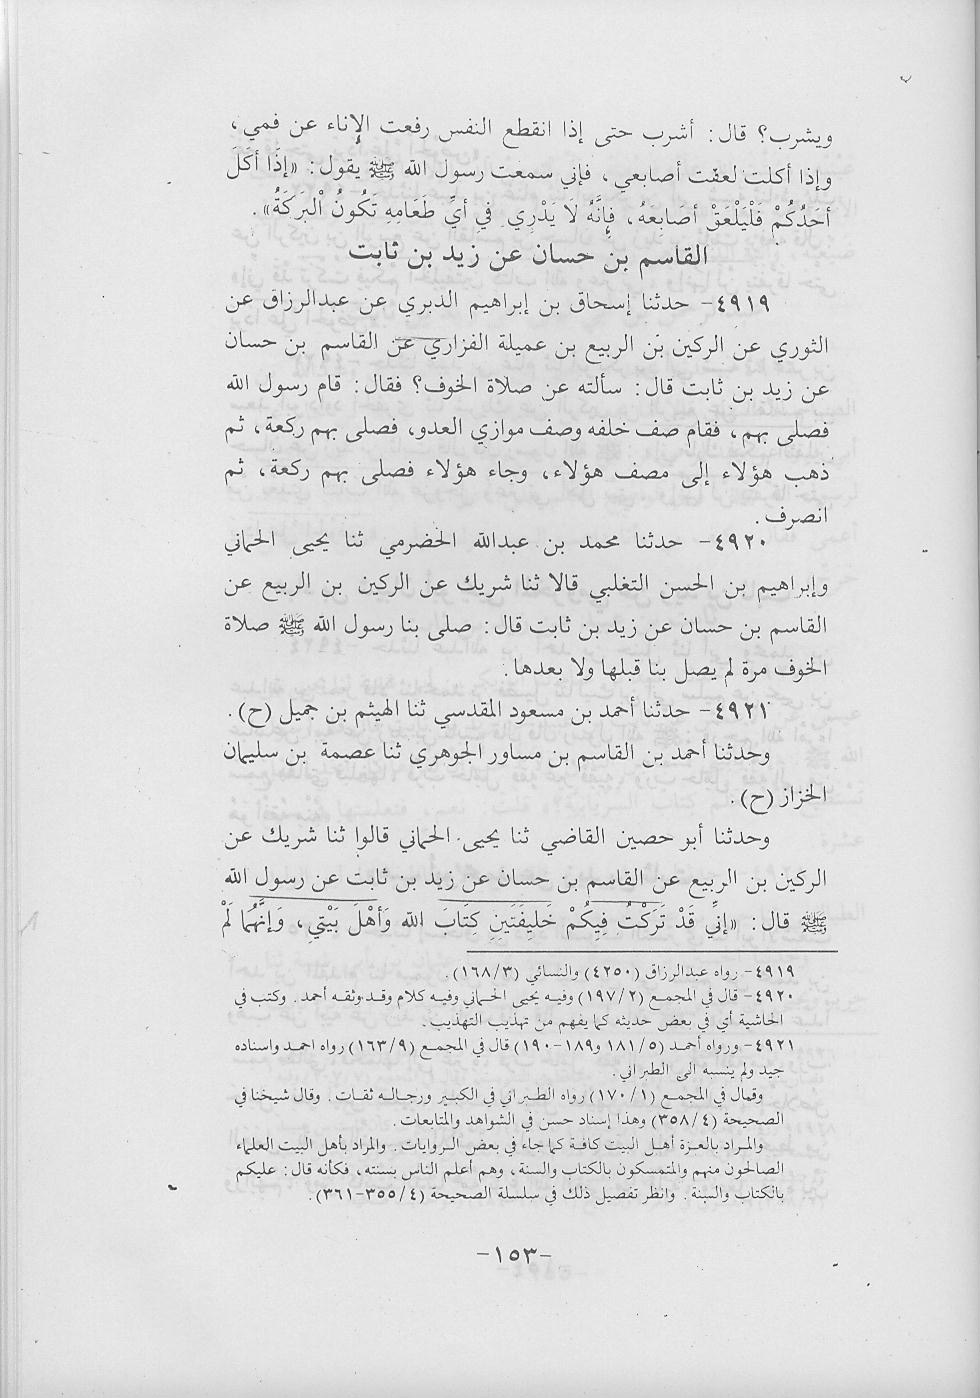 ويشرب؟ قال: أشرب حتى إذا انقطع النفس رفعت الإناء عن فمي،
وإذا أكلت لعقت أصابعي، فإني سمعت رسول الله ﷺ يقول: «إذَا أكَلَ
أحَدُكُمْ فَلْيَلْعَقْ أصَابِعَهُ، فإنَّهُ لاَ يَدْرِي فِي أيِّ طَعَامِهِ تَكُونُ الْبَرَكَةُ».
القاسم بن حسان عن زيد بن ثابت
٤٩١٩- حدثنا إسحاق بن إبراهيم الدبري عن عبدالرزاق عن
الثوري عن الركين بن الربيع بن عميلة الفزاري عن القاسم بن حسان
عن زيد بن ثابت قال: سألته عن صلاة الخوف؟ فقال: قام رسول الله
فصلى بهم، فقام صف خلفه وصف موازي العدو، فصلى بهم ركعة، ثم
ذهب هؤلاء إلى مصف هؤلاء، وجاء هؤلاء فصلى بهم ركعة، ثم
انصرف.
٤٩٢٠- حدثنا محمد بن عبدالله الحضرمي ثنا يحيى الحماني
وإبراهيم بن الحسن التغلبي قالا ثنا شريك عن الركين بن الربيع عن
القاسم بن حسان عن زيد بن ثابت قال: صلى بنا رسول الله ﷺ صلاة
الخوف مرة لم يصل بنا قبلها ولا بعدها.
٤٩٢١- حدثنا أحمد بن مسعود المقدسي ثنا الهيثم بن جميل (ح).
وحدثنا أحمد بن القاسم بن مساور الجوهري ثنا عصمة بن سليمان
الخزاز (ح).
وحدثنا أبو حصين القاضي ثنا يحيى الحماني قالوا ثنا شريك عن
الركين بن الربيع عن القاسم بن حسان عن زيد بن ثابت عن رسول الله
ﷺ قال: «إنِّي قَدْ تَرَكْتُ فِيكُمْ خَلِيفَتَينِ كِتَابَ الله وَأهْلَ بَيْتِي، وَإنَّهُمَا لَمْ
٤٩١٩- رواه عبدالرزاق (٤٢٥٠) والنسائي (١٦٨/٣).
٤٩٢٠- قال في المجمع (١٩٧/٢) وفيه يحيى الحماني وفيه كلام وقد وثقه أحمد. وكتب في
الحاشية أي في بعض حديثه كما يفهم من تهذيب التهذيب.
٤٩٢١- ورواه أحمد (١٨١/٥ و١٨٩-١٩٠) قال في المجمع (١٦٣/٩) رواه احمد واسناده
جيد ولم ينسبه الى الطبراني.
وقال في المجمع (١٧٠/١) رواه الطبراني في الكبير ورجاله ثقات. وقال شيخنا في
الصحيحة (٣٥٨/٤) وهذا إسناد حسن في الشواهد والمتابعات.
والمراد بالعترة أهل البيت كافة كما جاء في بعض الروايات. والمراد بأهل البيت العلماء
الصالحون منهم والمتمسكون بالكتاب والسنة، وهم أعلم الناس بسنته، فكأنه قال: عليكم
بالكتاب والسنة. وانظر تفصيل ذلك في سلسلة الصحيحة (٣٥٥/٤-٣٦١).
-١٥٣-